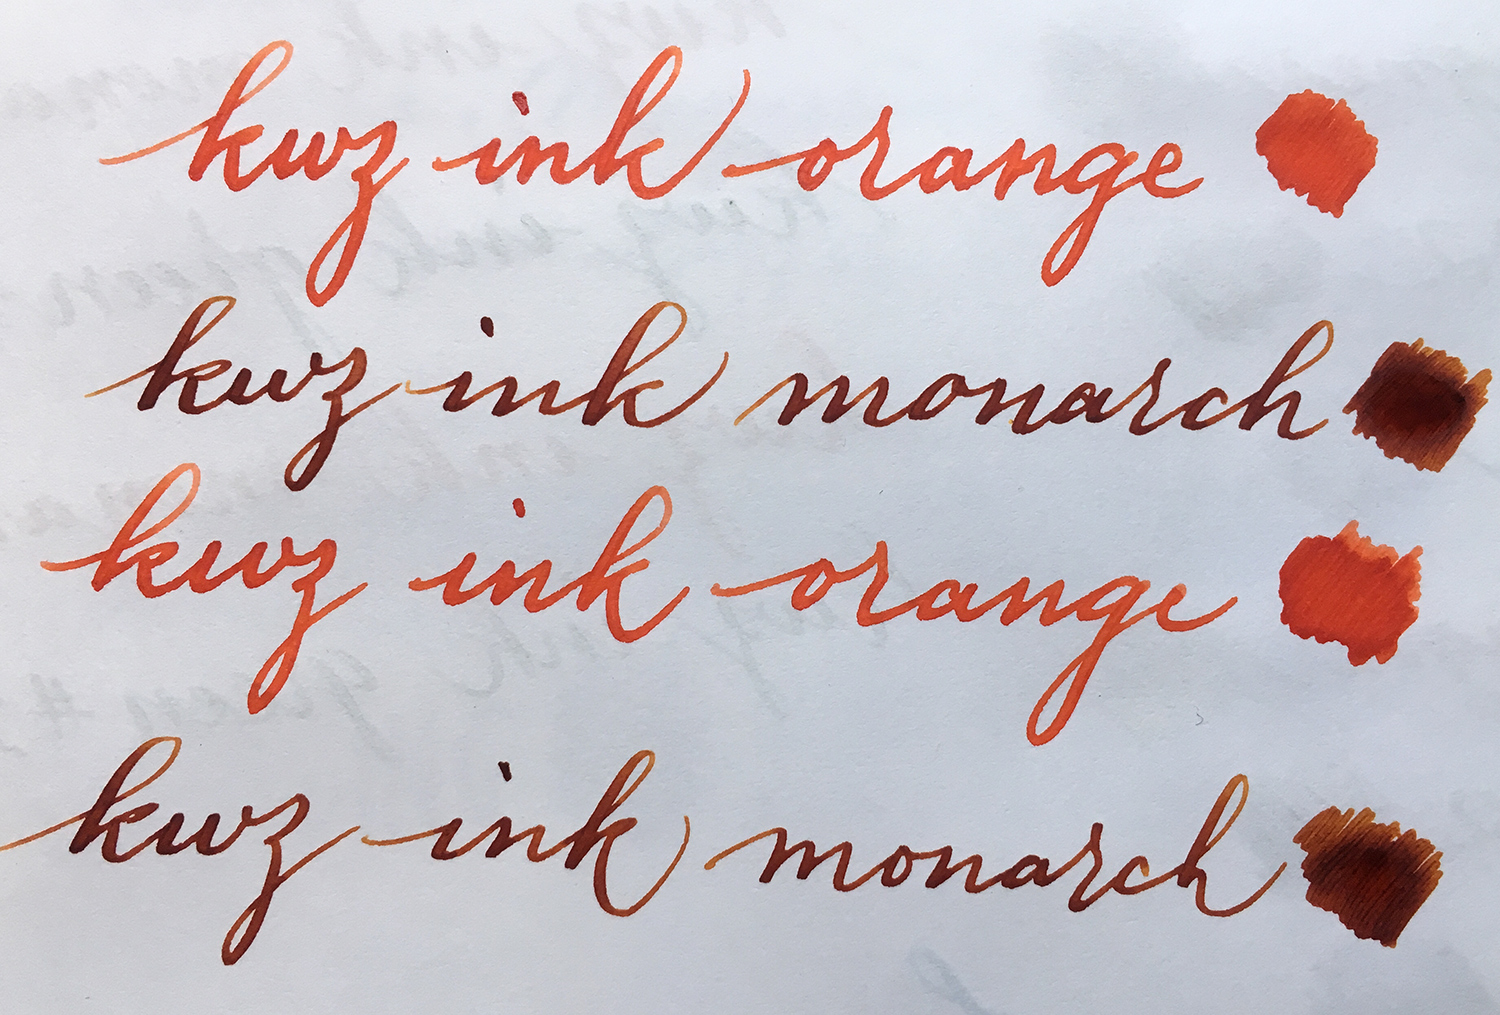 kwz ink orange
kwz ink monarch
kwz ink orange
kwz ink monarch